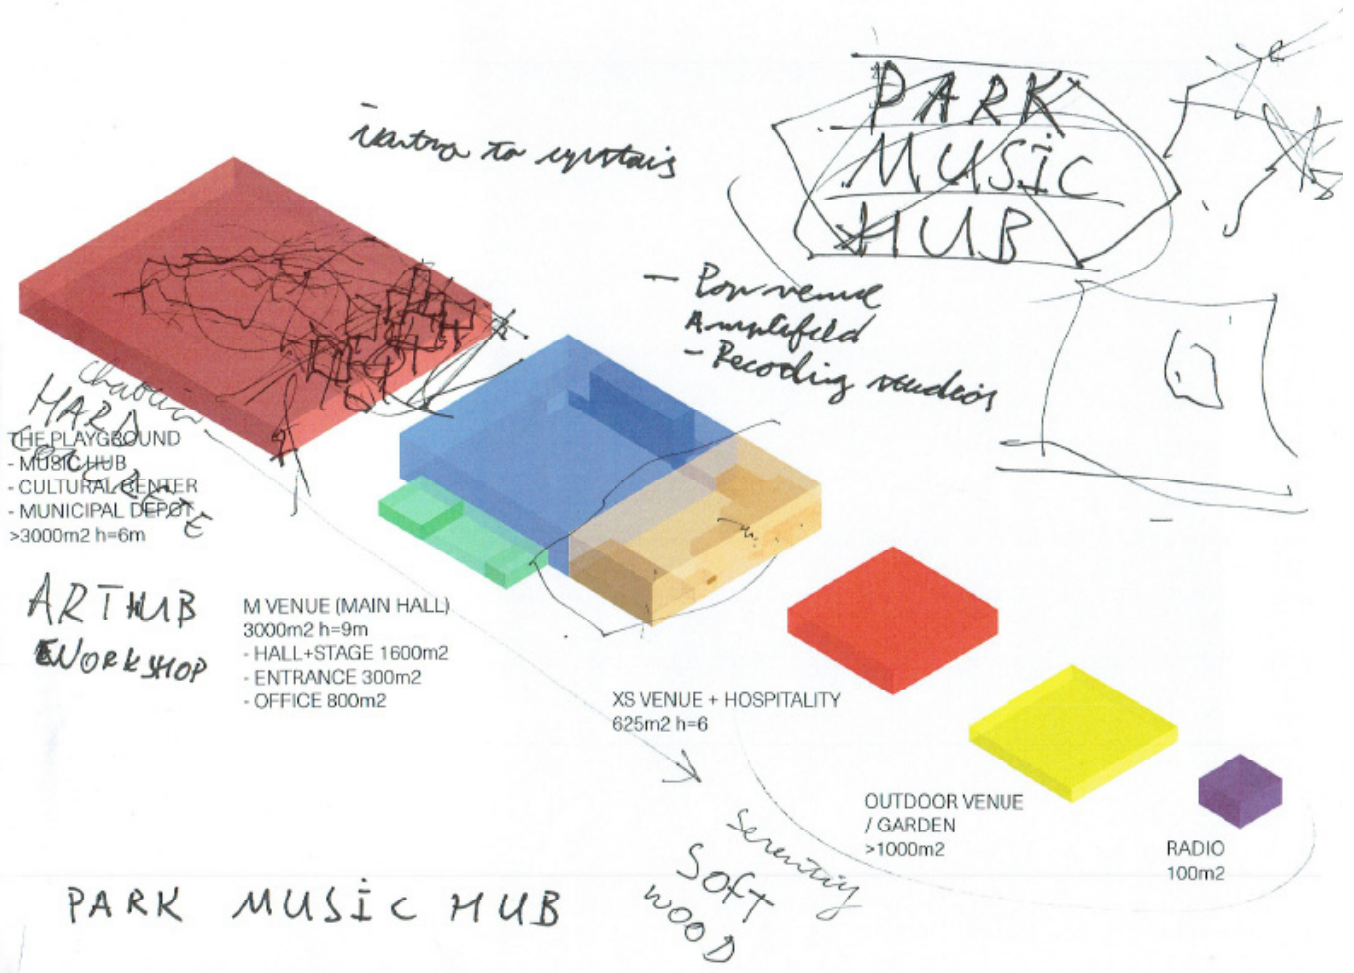 PARK
MUSIC
HUB
to
- Pop venue
Amplifeld
- Recoding studios
HARD
CONCRETE
THE PLAYGROUND
- MUSIC HUB
- CULTURAL CENTER
- MUNICIPAL DEPOT
>3000m2 h=6m
ARTHUB
WORKSHOP
M VENUE (MAIN HALL)
3000m2 h=9m
- HALL+STAGE 1600m2
- ENTRANCE 300m2
- OFFICE 800m2
XS VENUE + HOSPITALITY
625m2 h=6
OUTDOOR VENUE
/ GARDEN
>1000m2
RADIO
100m2
Serenity
SOFT
WOOD
PARK MUSIC HUB